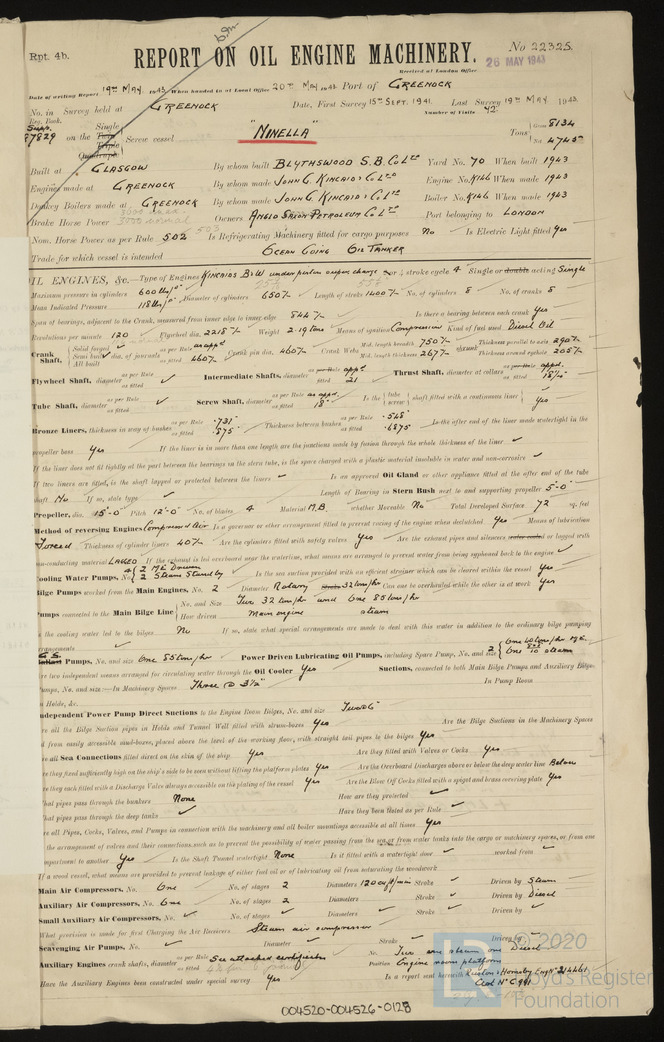 Rpt. 4b.
REPORT ON OIL ENGINE MACHINERY.
No 22325.
26 MAY 1943
Received at London Office
Date of writing Report 19th May 1943 When handed in at Local Office 20th May 1943 Port of GREENOCK
No. in Reg. Book. Survey held at GREENOCK Date, First Survey 15th SEPT. 1941. Last Survey 19th MAY 1943
Number of Visits 42
Supp. 87829 on the Single Twin Triple Quadruple Screw vessel "NINELLA" Tons Gross 8134 Net 4745
Built at GLASGOW By whom built BLYTHSWOOD S.B. Co Ltd Yard No. 70 When built 1943
Engines made at GREENOCK By whom made JOHN G. KINCAID & Co Ltd Engine No. K146 When made 1943
Donkey Boilers made at GREENOCK By whom made JOHN G. KINCAID & Co Ltd Boiler No. K146 When made 1943
Brake Horse Power Owners ANGLO SAXON PETROLEUM Co Ltd Port belonging to LONDON
Nom. Horse Power as per Rule 502 Is Refrigerating Machinery fitted for cargo purposes No Is Electric Light fitted Yes
Trade for which vessel is intended OCEAN GOING OIL TANKER
OIL ENGINES, &c.—Type of Engines KINCAIDS B&W under piston super charge 2 or 4 stroke cycle 4 Single or double acting Single
Maximum pressure in cylinders 600 lbs/□" Diameter of cylinders 650 m/m Length of stroke 1400 m/m No. of cylinders 8 No. of cranks 8
Mean Indicated Pressure 118 lbs/□"
Span of bearings, adjacent to the Crank, measured from inner edge to inner edge 844 m/m Is there a bearing between each crank Yes
Revolutions per minute 120 Flywheel dia. 2218 m/m Weight 2.19 tons Means of ignition Compression Kind of fuel used Diesel Oil
Crank Shaft, Solid forged Semi built All built dia. of journals as per Rule as appd as fitted 460 m/m Crank pin dia. 460 m/m Crank Webs Mid. length breadth 750 m/m Mid. length thickness 267 m/m shrunk Thickness parallel to axis 290 m/m Thickness around eyehole 205 m/m
Flywheel Shaft, diameter as per Rule as fitted Intermediate Shafts, diameter as per Rule appd. fitted Thrust Shaft, diameter at collars as per Rule appd. as fitted
Tube Shaft, diameter as per Rule as fitted Screw Shaft, diameter as per Rule as appd. as fitted 18" Is the tube screw shaft fitted with a continuous liner Yes
Bronze Liners, thickness in way of bushes as per Rule .731 as fitted .875 Thickness between bushes as per Rule .548 as fitted .6875 Is the after end of the liner made watertight in the
propeller boss Yes If the liner is in more than one length are the junctions made by fusion through the whole thickness of the liner
If the liner does not fit tightly at the part between the bearings in the stern tube, is the space charged with a plastic material insoluble in water and non-corrosive
If two liners are fitted, is the shaft lapped or protected between the liners Is an approved Oil Gland or other appliance fitted at the after end of the tube
shaft No If so, state type Length of Bearing in Stern Bush next to and supporting propeller 5'-0"
Propeller, dia. 15'-0" Pitch 12'-0" No. of blades 4 Material M.B. whether Moveable No Total Developed Surface 72 sq. feet
Method of reversing Engines Compressed Air Is a governor or other arrangement fitted to prevent racing of the engine when declutched Yes Means of lubrication
Forced Thickness of cylinder liners 40 m/m Are the cylinders fitted with safety valves Yes Are the exhaust pipes and silencers water cooled or lagged with
non-conducting material LAGGED If the exhaust is led overboard near the waterline, what means are arranged to prevent water from being syphoned back to the engine
Cooling Water Pumps, No. 2 Stand by Is the sea suction provided with an efficient strainer which can be cleared within the vessel Yes
Bilge Pumps worked from the Main Engines, No. 2 Diameter Rotary Stroke 32 tons/hr Can one be overhauled while the other is at work Yes
Pumps connected to the Main Bilge Line No. and Size Two 32 tons/hr and One 85 tons/hr
How driven Main engine steam
Is the cooling water led to the bilges No If so, state what special arrangements are made to deal with this water in addition to the ordinary bilge pumping
arrangements
Ballast Pumps, No. and size One 85 tons/hr Power Driven Lubricating Oil Pumps, including Spare Pump, No. and size 2
Are two independent means arranged for circulating water through the Oil Cooler Yes Suctions, connected to both Main Bilge Pumps and Auxiliary Bilge
Pumps, No. and size:—In Machinery Spaces Three @ 3½" In Pump Room
In Holds, &c.
Independent Power Pump Direct Suctions to the Engine Room Bilges, No. and size
Are all the Bilge Suction pipes in Holds and Tunnel Well fitted with strum-boxes Yes Are the Bilge Suctions in the Machinery Spaces
led from easily accessible mud-boxes, placed above the level of the working floor, with straight tail pipes to the bilges Yes
Are all Sea Connections fitted direct on the skin of the ship Yes Are they fitted with Valves or Cocks Yes
Are they fixed sufficiently high on the ship's side to be seen without lifting the platform plates Yes Are the Overboard Discharges above or below the deep water line Below
Are they each fitted with a Discharge Valve always accessible on the plating of the vessel Yes Are the Blow Off Cocks fitted with a spigot and brass covering plate Yes
What pipes pass through the bunkers None How are they protected
What pipes pass through the deep tanks Have they been tested as per Rule
Are all Pipes, Cocks, Valves, and Pumps in connection with the machinery and all boiler mountings accessible at all times Yes
Is the arrangement of valves and their connections such as to prevent the possibility of water passing from the sea or from water tanks into the cargo or machinery spaces, or from one
compartment to another Yes Is the Shaft Tunnel watertight None Is it fitted with a watertight door worked from
If a wood vessel, what means are provided to prevent leakage of either fuel oil or of lubricating oil from saturating the woodwork
Main Air Compressors, No. One No. of stages 2 Diameters 120 cu ft/min Stroke Driven by Steam
Auxiliary Air Compressors, No. One No. of stages 2 Diameters Stroke Driven by Diesel
Small Auxiliary Air Compressors, No. No. of stages Diameters Stroke Driven by
What provision is made for first Charging the Air Receivers Steam air compressor
Scavenging Air Pumps, No. Diameter Stroke Driven by
Auxiliary Engines crank shafts, diameter as per Rule See attached certificates as fitted No. Two one steam one Diesel
Position Engine room platform
Have the Auxiliary Engines been constructed under special survey Yes Is a report sent herewith Ruston & Hornsby Eng No
004520-004526-0128
© 2020
Lloyd's Register
Foundation